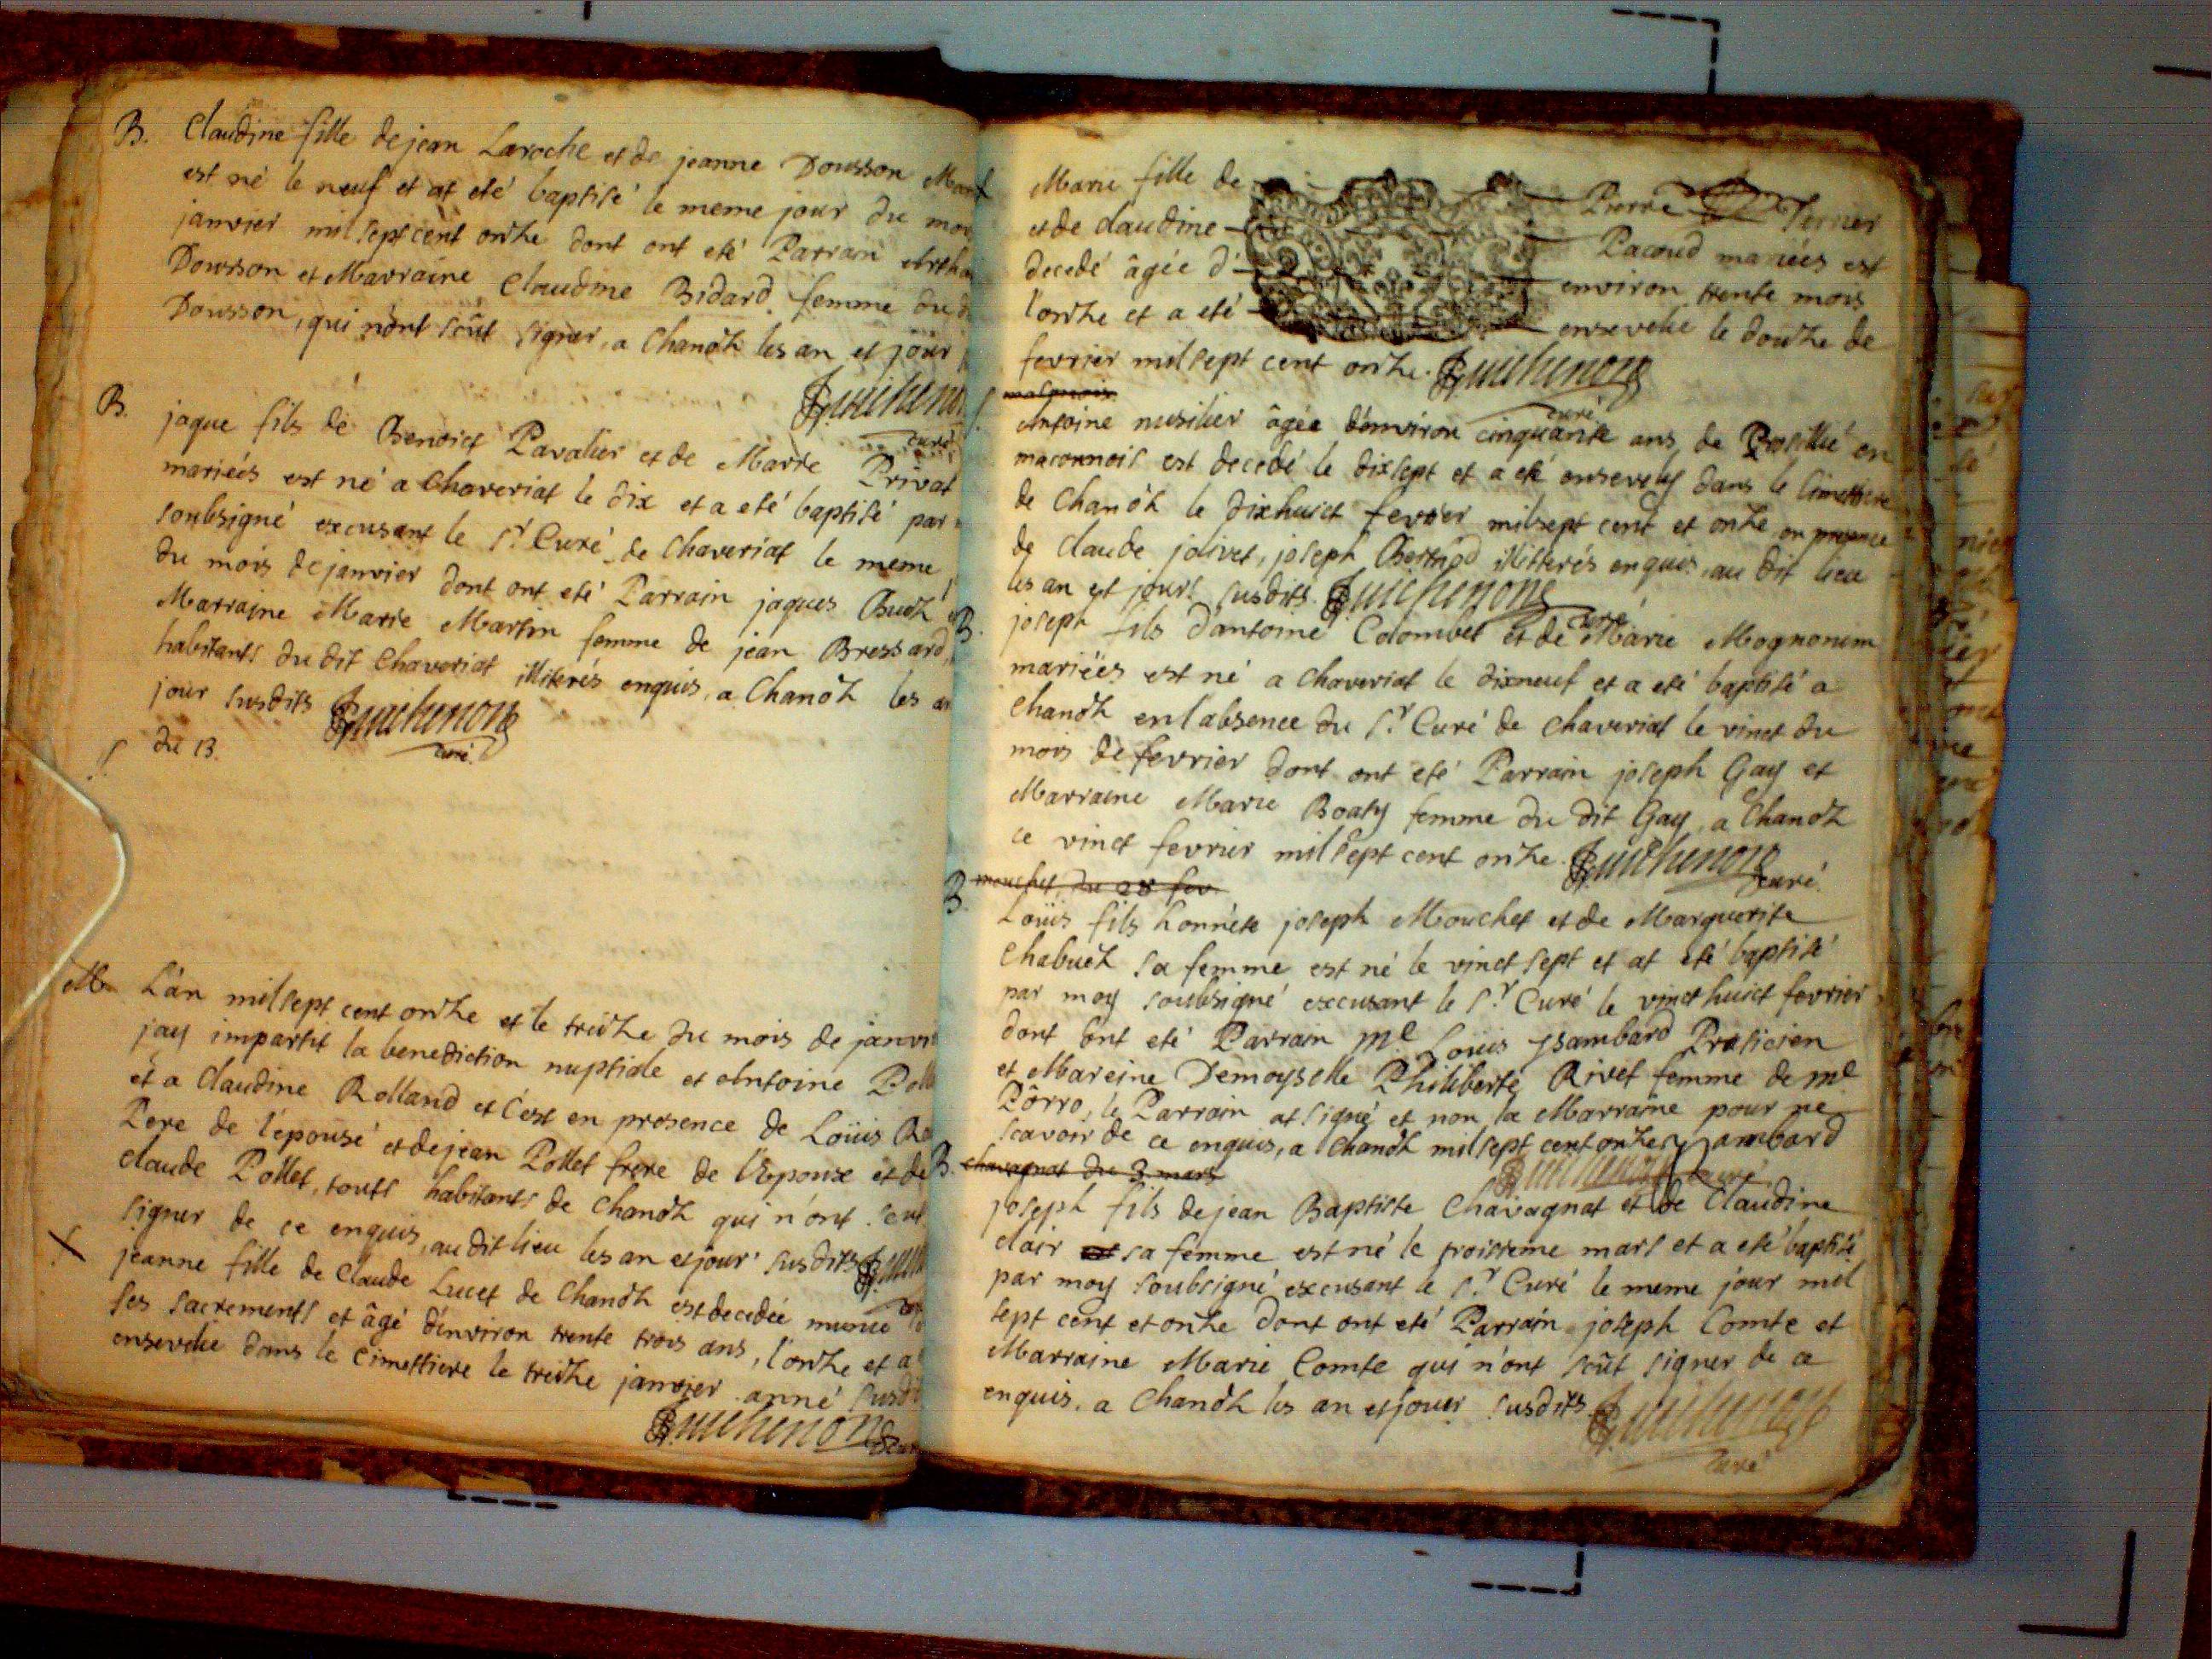 B. Claudine fille de jean Laroche et de jeanne Dousson
est né le neuf et at eté baptisé le meme jour du
janvier mil sept cent onze dont ont eté Parrain
Dousson et Marraine Claudine Bidard femme du
Dousson, qui nont scût signer, a Chanoz les an et jour
Guichenon
curé
B. jaque fils de Benoict Pavalier et de Marie Privat
mariées est né a Chaveriat le dix et a eté baptisé par
soubsigné excusant le Sr Curé de Chaveriat le meme
du mois de janvier dont ont eté Parrain jaques Buet
Marraine Marie Martin femme de jean Bressard
habitants du dit Chaveriat illiterés enquis, a Chanoz les
jour susdits Guichenon
curé
S du 13.
M. L'an mil sept cent onze et le treize du mois de
jay impartit la benediction nuptiale et Antoine
et a Claudine Rolland et c'est en presence de Loüis
Pere de l'epousé et de jean Pollet frere de l'Epoux et de
claude Pollet, touts habitants de Chanoz qui n'ont
signer de ce enquis, au dit lieu les an et jour susdits
S jeanne fille de Claude Lucet de Chanoz est decedée munie
ses sacrements et âgé d'environ trente trois ans, l'onze et a
ensevelie dans le Cimettiere le treize janvier anné
Guichenon
Marie fille de Pierre Terrier
et de claudine Pacoud mariées est
decedé âgée d'environ trente mois
l'onze et a eté ensevelie le douze de
fevrier mil sept cent onze. Guichenon
curé
S Antoine nusilier âgée d'environ cinquante ans de en
maconnois est decedé le dixsept et a eté ensevely dans le Cimettiere
de Chanoz le dixhuict fevrier mil sept cent et onze en presence
de claude jolivet, joseph Berthod illiterés enquis, au dit lieu
les an et jours susdits. Guichenon
curé
B. joseph fils d'antoine Colombet et de Marie Mognonem
mariées est né a Chaveriat le dixneuf et a eté baptisé a
Chanoz en l'absence du Sr Curé de Chaveriat le vinct du
mois de fevrier dont ont eté Parrain joseph Gay et
Marraine Marie Boaty femme du dit Gay, a Chanoz
ce vinct fevrier mil sept cent onze. Guichenon
curé.
mouchet du 28 fev.
B. Loüis fils honnête joseph Mouchet et de Marguerite
Chabuéz sa femme est né le vinct sept et at eté baptisé
par moy soubsigné excusant le Sr Curé le vinct huict fevrier
dont ont eté Parrain me Loüis ysambard Praticien
et Mareine Demoyselle Philiberte Rivet femme de me
Pôrro, le Parrain at signé et non la Marraine pour ne
scavoir de ce enquis, a Chanoz mil sept cent onze ysambard
Guichenon curé
B. chavagnat du 3 mars
joseph fils de jean Baptiste Chavagnat et de Claudine
clair sa femme est né le troisieme mars et a eté baptisé
par moy soubsigné excusant le Sr Curé le meme jour mil
sept cent et onze dont ont eté Parrain joseph Comte et
Marraine Marie Comte qui n'ont scût signer de ce
enquis. a Chanoz les an et jour susdits Guichenon
curé